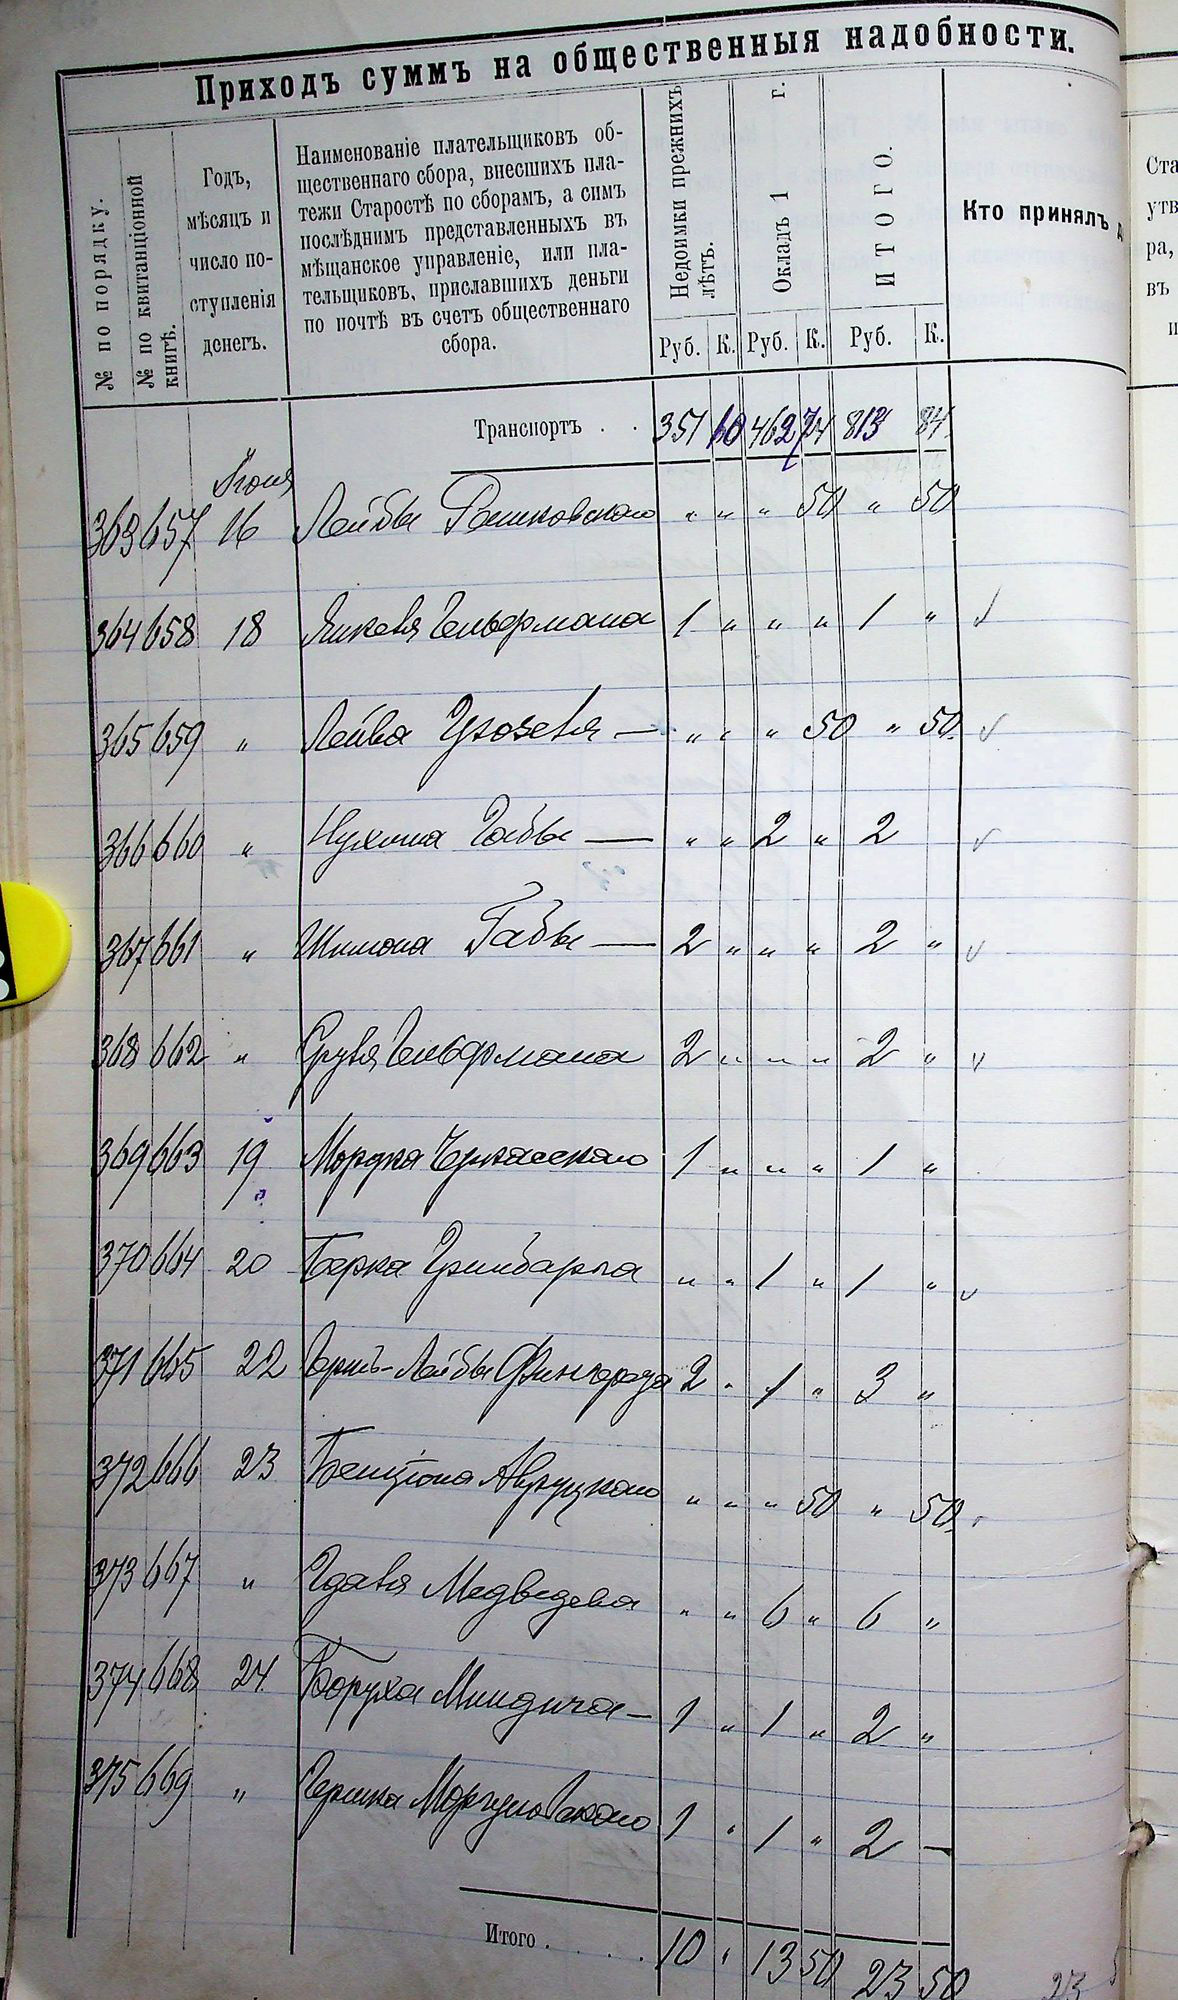 Приходъ суммъ на общественныя надобности.
№ по порядку.
№ по квитанціонной книгѣ.
Годъ,
мѣсяцъ и
число по-
ступленія
денегъ.
Наименованіе плательщиковъ об-
щественнаго сбора, внесшихъ пла-
тежи Старостѣ по сборамъ, а симъ
послѣднимъ представленныхъ въ
мѣщанское управленіе, или пла-
тельщиковъ, приславшихъ деньги
по почтѣ въ счетъ общественнаго
сбора.
Недоимки прежнихъ лѣтъ.
Окладъ 1 г.
ИТОГО.
Кто принялъ
Руб. К. Руб. К. Руб. К.
Транспортъ . . 351 10 462 74 813 84
Іюня
363 657 16 Лейбы " " " 50 " 50
364 658 18 Янкеля Гельфмана 1 " " " 1 "
365 659 " Лейба — " " " 50 " 50
366 660 " Нухима Габы — " " 2 " 2
367 661 " Шимона Габы — 2 " " " 2 "
368 662 " Сруля Гельфмана 2 " " " 2 "
369 663 19 Мордка Черкасскаго 1 " " " 1 "
370 664 20 Берка Гринбарга " " 1 " 1 "
371 665 22 Герша-Лейбы 2 " 1 " 3 "
372 666 23 Бенціона Авруцкаго " " " 50 " 50
373 667 " Гдаля Медведева " " 6 " 6 "
374 668 24 Боруха Миндича — 1 " 1 " 2 "
375 669 " Гершка Моргуновскаго 1 " 1 " 2 —
Итого . . . . . 10 " 13 50 23 50
23
Ста
утв
ра,
въ